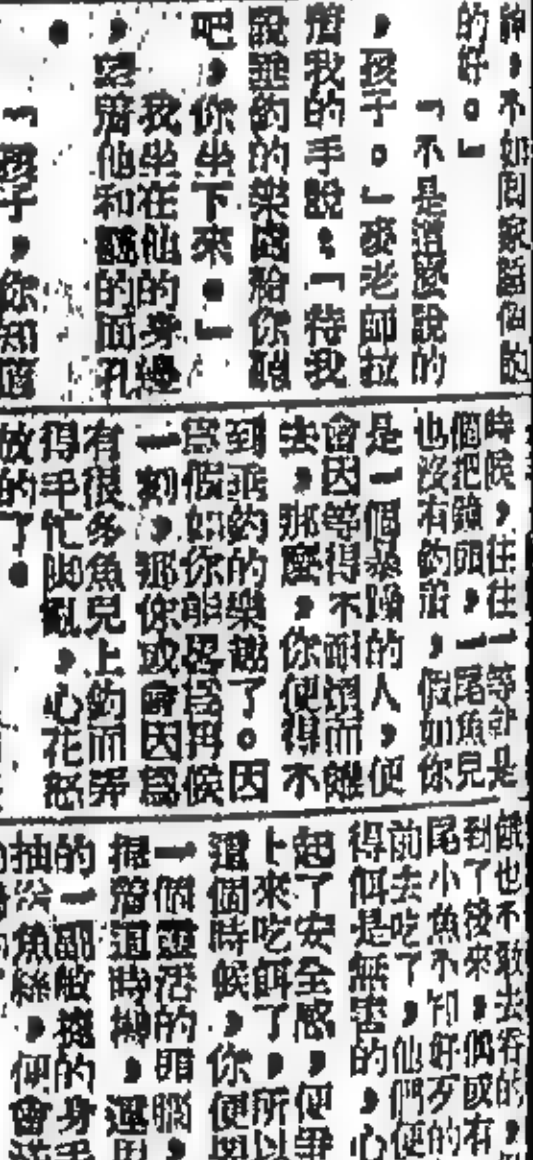 神，不如回家
的好。」
「不是這麼說的
，孩子。」麥老師拉
着我的手說：「待我
說垂釣的樂處給你聽
吧，你坐下來。」
我坐在他的身邊
，望着他和靄的面孔
。
「孩子，你知道
時候，往往一等就是
個把鐘頭，一尾魚兒
也沒有釣着，假如你
是一個暴躁的人，便
會因等得不耐煩而離
去，那麼，你便得不
到垂釣的樂趣了。因
爲假如你能忍爲再候
一刻，那你或會因爲
有很多魚兒上釣而弄
得手忙脚亂，心花怒
放的了。
餓也不敢去吞的，
到了後來，偶或有
尾小魚不知好歹的
前去吃了，他們便
得餌是無害的，心
起了安全感，便爭
上來吃餌了，所以
這個時候，你便
一個靈活的頭腦，
握着這時機，運用
的一副敏捷的身手
抽沿魚絲，便會